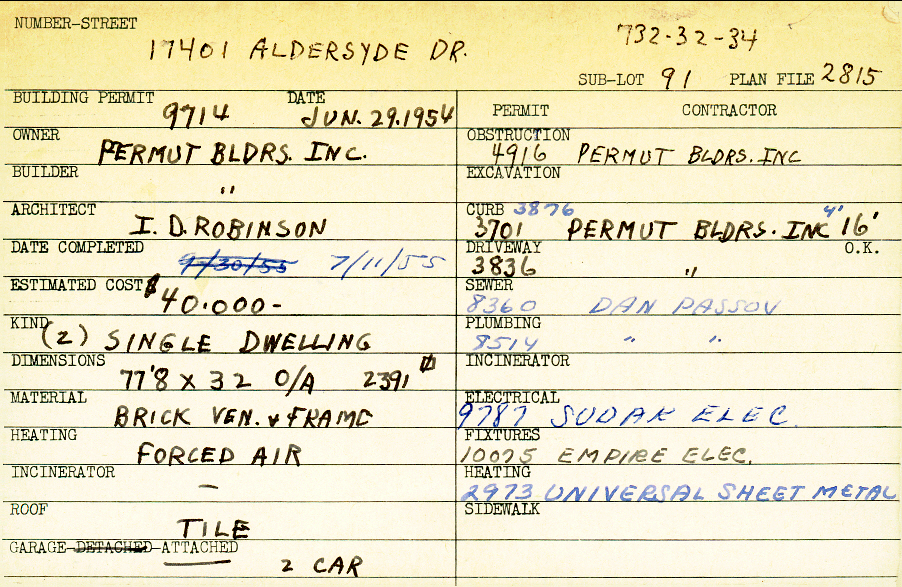 NUMBER-STREET
17401 ALDERSYDE DR. 732-32-34
SUB-LOT 91 PLAN FILE 2815
BUILDING PERMIT 9714 DATE JUN. 29. 1954
PERMIT CONTRACTOR
OWNER PERMUT BLDRS. INC.
OBSTRUCTION 4916 PERMUT BLDRS. INC
BUILDER "
EXCAVATION
ARCHITECT I. D. ROBINSON
CURB 3876 4'
3701 PERMUT BLDRS. INC 16'
DATE COMPLETED 9/30/55 7/11/55
DRIVEWAY O.K.
3836 "
ESTIMATED COST $40.000-
SEWER
8360 DAN PASSOV
KIND (2) SINGLE DWELLING
PLUMBING
8514 " "
DIMENSIONS 77'8 X 32 O/A 2391
INCINERATOR
MATERIAL BRICK VEN. & FRAME
ELECTRICAL
9787 SUDAK ELEC.
HEATING FORCED AIR
FIXTURES
10075 EMPIRE ELEC.
INCINERATOR -
HEATING
2973 UNIVERSAL SHEET METAL
ROOF TILE
SIDEWALK
GARAGE-DETACHED-ATTACHED
2 CAR